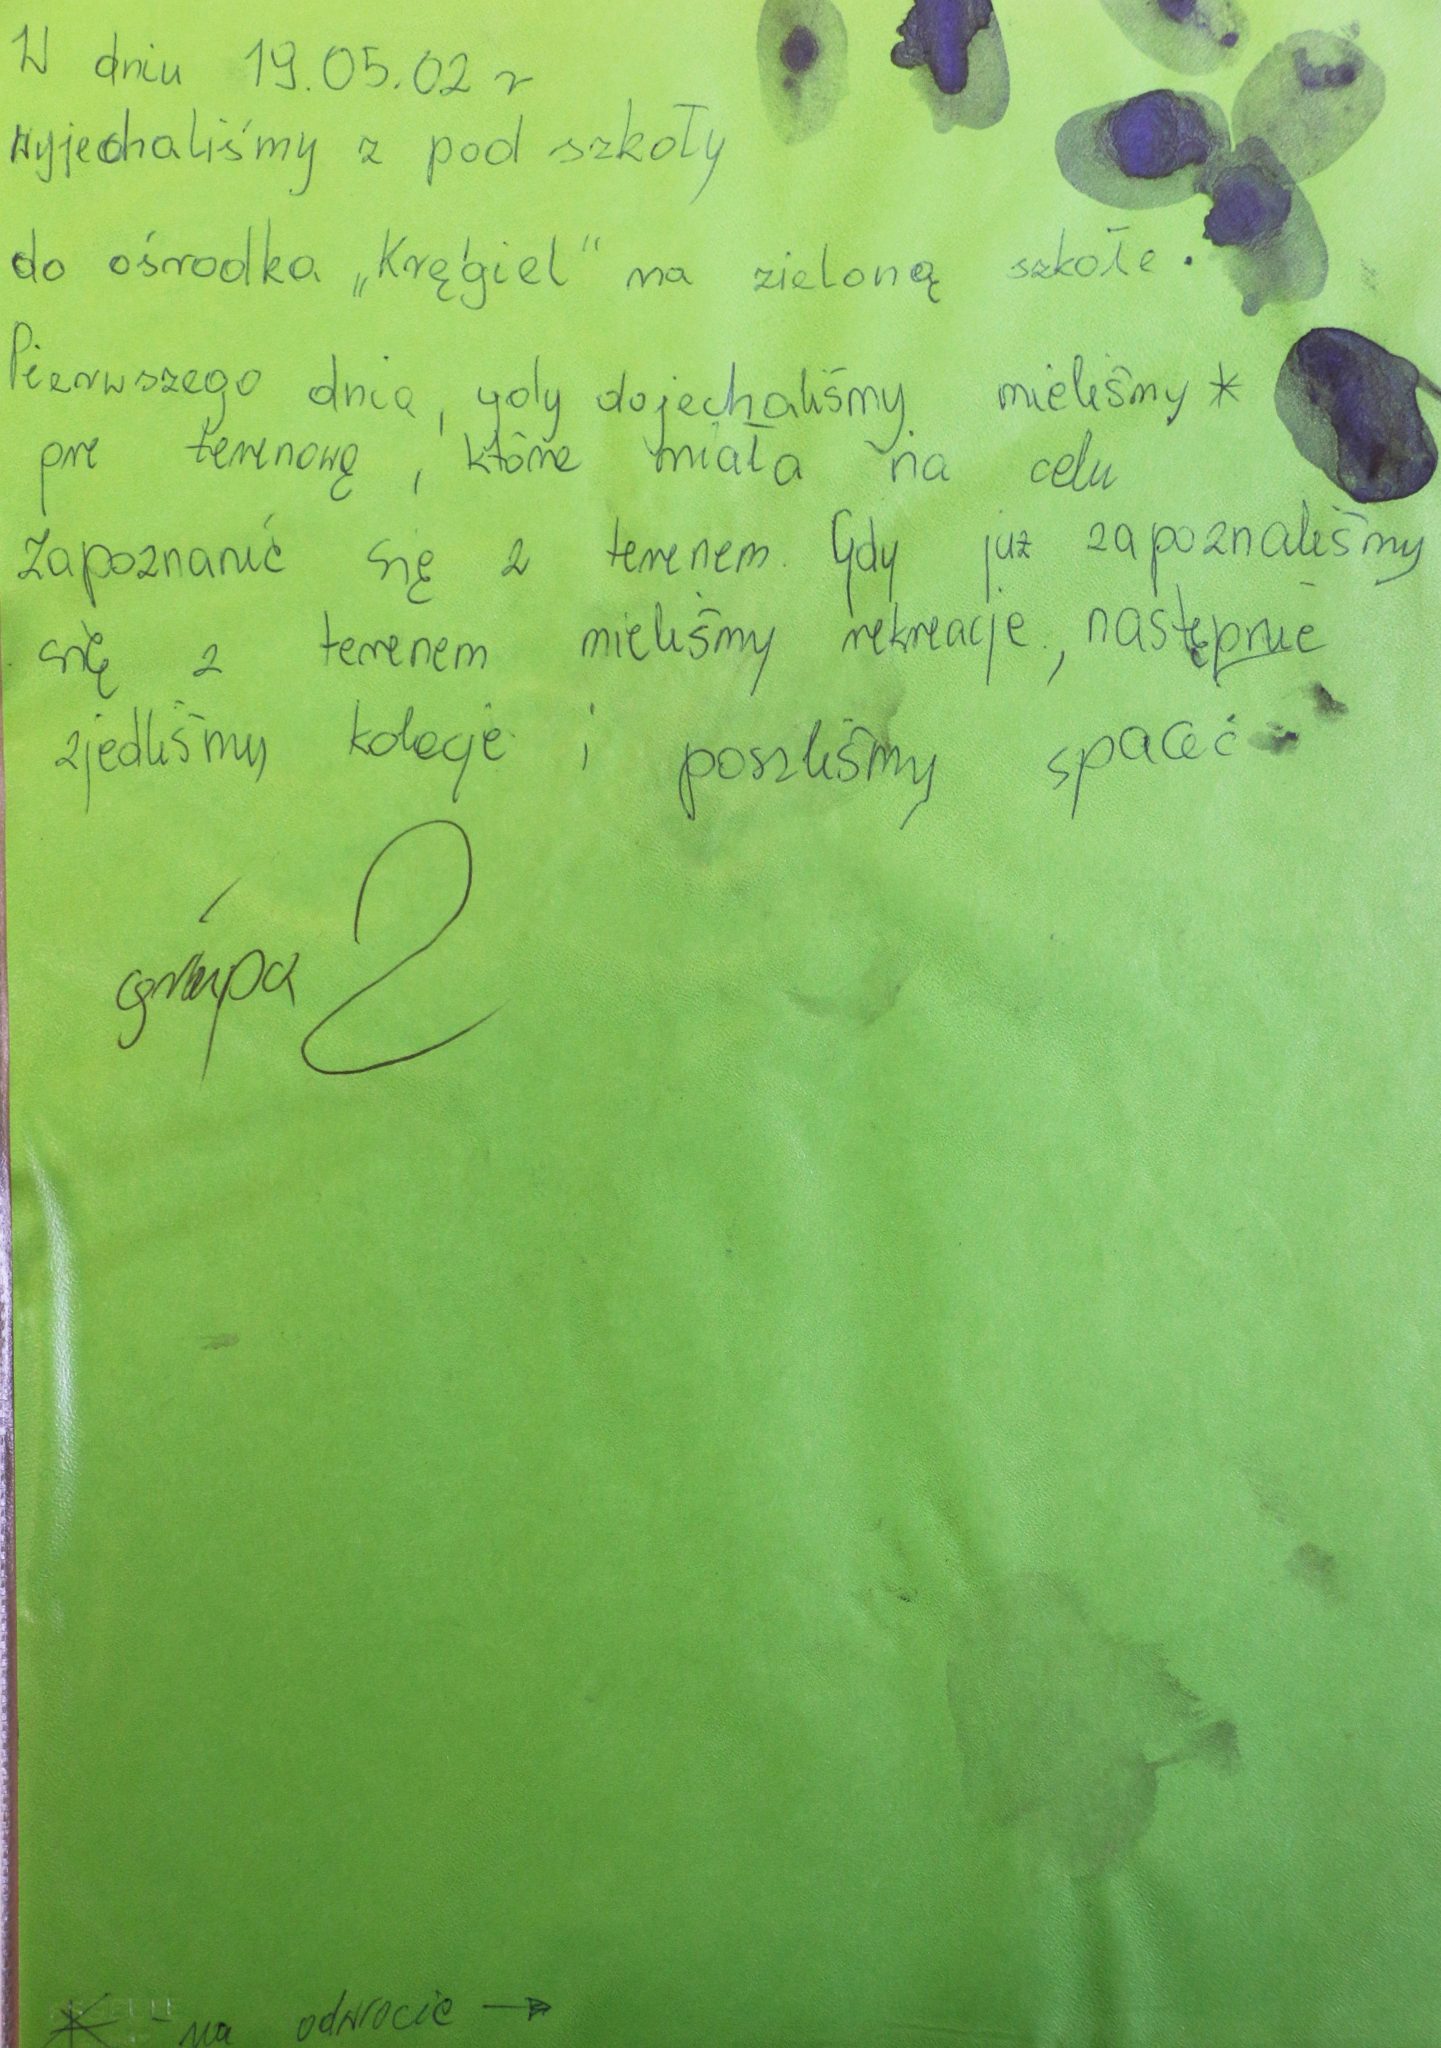 W dniu 19.05.02 r
wyjechaliśmy z pod szkoły
do ośrodka „Kręgiel" na zieloną szkołe.
Pierwszego dnia, gdy dojechaliśmy mieliśmy *
gre terenową, która miała na celu
zapoznanié się z terenem. Gdy już zapoznaliśmy
się z terenem mieliśmy rekreacje, następnie
zjedliśmy kolacje i poszliśmy spać
grupa 2
* - na odwrocie →